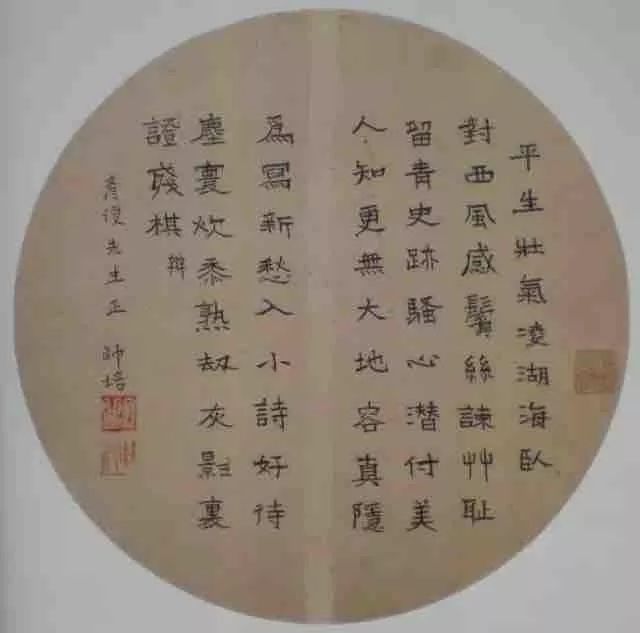 平生壯氣凌湖海臥
對西風感鬢絲諫艸耻
留青史跡騷心潛付美
人知更無大地容真隱
爲寫新愁入小詩好待
塵寰炊黍熟劫灰影裏
證殘棋
彥復先生正 師培